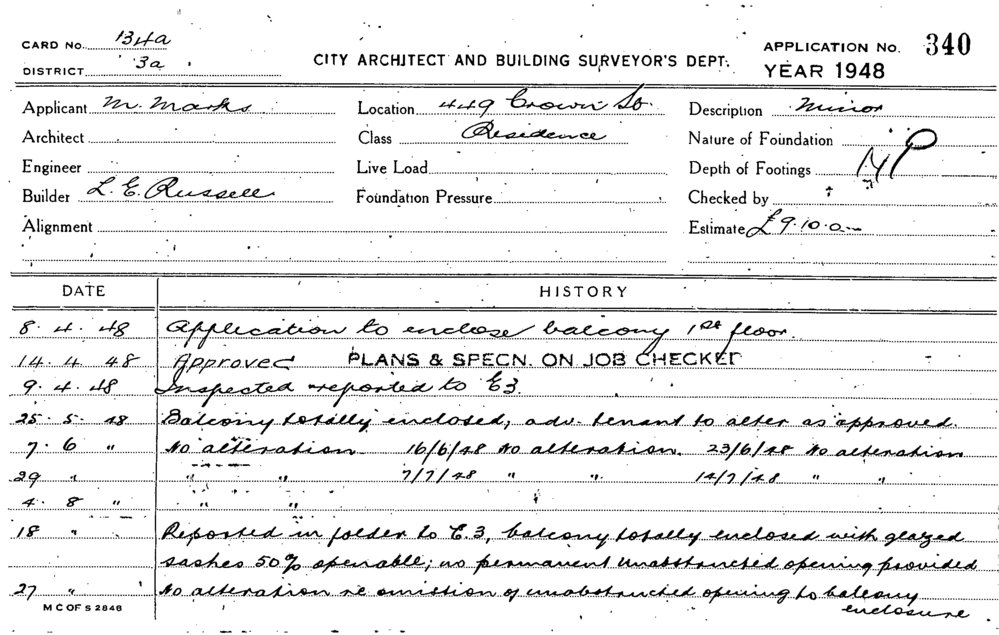 CARD No. 134a
DISTRICT 3a
CITY ARCHITECT AND BUILDING SURVEYOR'S DEPT.
APPLICATION No. 340
YEAR 1948
Applicant M. Marks
Location 449 Crown St.
Description Minor
Architect
Class Residence
Nature of Foundation
Engineer
Live Load
Depth of Footings
Builder L. E. Russell
Foundation Pressure
Checked by
Alignment
Estimate £9.10.0
DATE HISTORY
8. 4. 48 Application to enclose balcony 1st floor.
14. 4. 48 Approved PLANS & SPECN. ON JOB CHECKED
9. 4. 48 Inspected & reported to E3.
25. 5. 48 Balcony totally enclosed, adv. tenant to alter as approved.
7. 6 " No alteration. 16/6/48 No alteration. 23/6/48 No alteration
29 " " " 7/7/48 " " 14/7/48 " "
4. 8 " " "
18 " Reported in folder to E.3, balcony totally enclosed with glazed
sashes 50% openable; no permanent unobstructed opening provided
27 " No alteration re omission of unobstructed opening to balcony
enclosure
M C OF S 2848